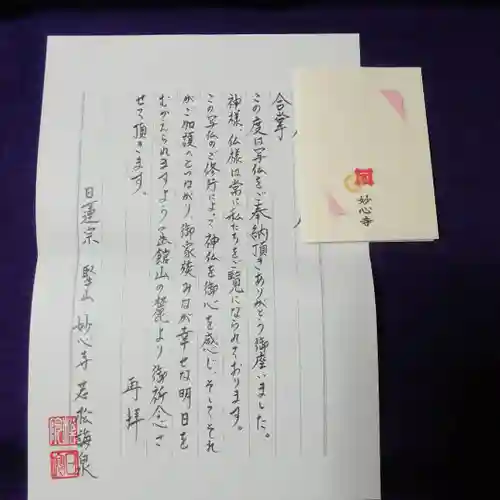 合掌
この度は写仏をご奉納頂きありがとう御座いました。
神様、仏様は常に私たちをご覧になられております。
この写仏のご修行によって神仏を御心を感じ、そしてそれ
がご加護へとつながり、御家族みなが幸せな明日を
むかえられますよう函館山の麓より御祈念さ
せて頂きます。
再拝
日蓮宗 堅山 妙心寺 若松海泉
妙心寺